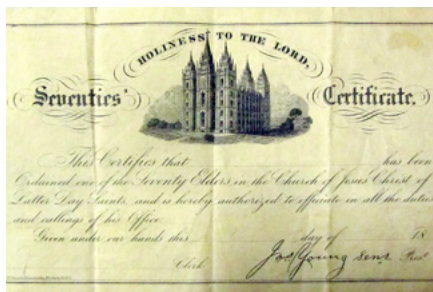 HOLINESS TO THE LORD,
Seventies' Certificate.
This Certifies that has been
Ordained one of the Seventy Elders in the Church of Jesus Christ of
Latter Day Saints, and is hereby authorized to officiate in all the duties
and callings of his Office.
Given under our hands this day of 18
Clerk Jos. Young Senr Prest